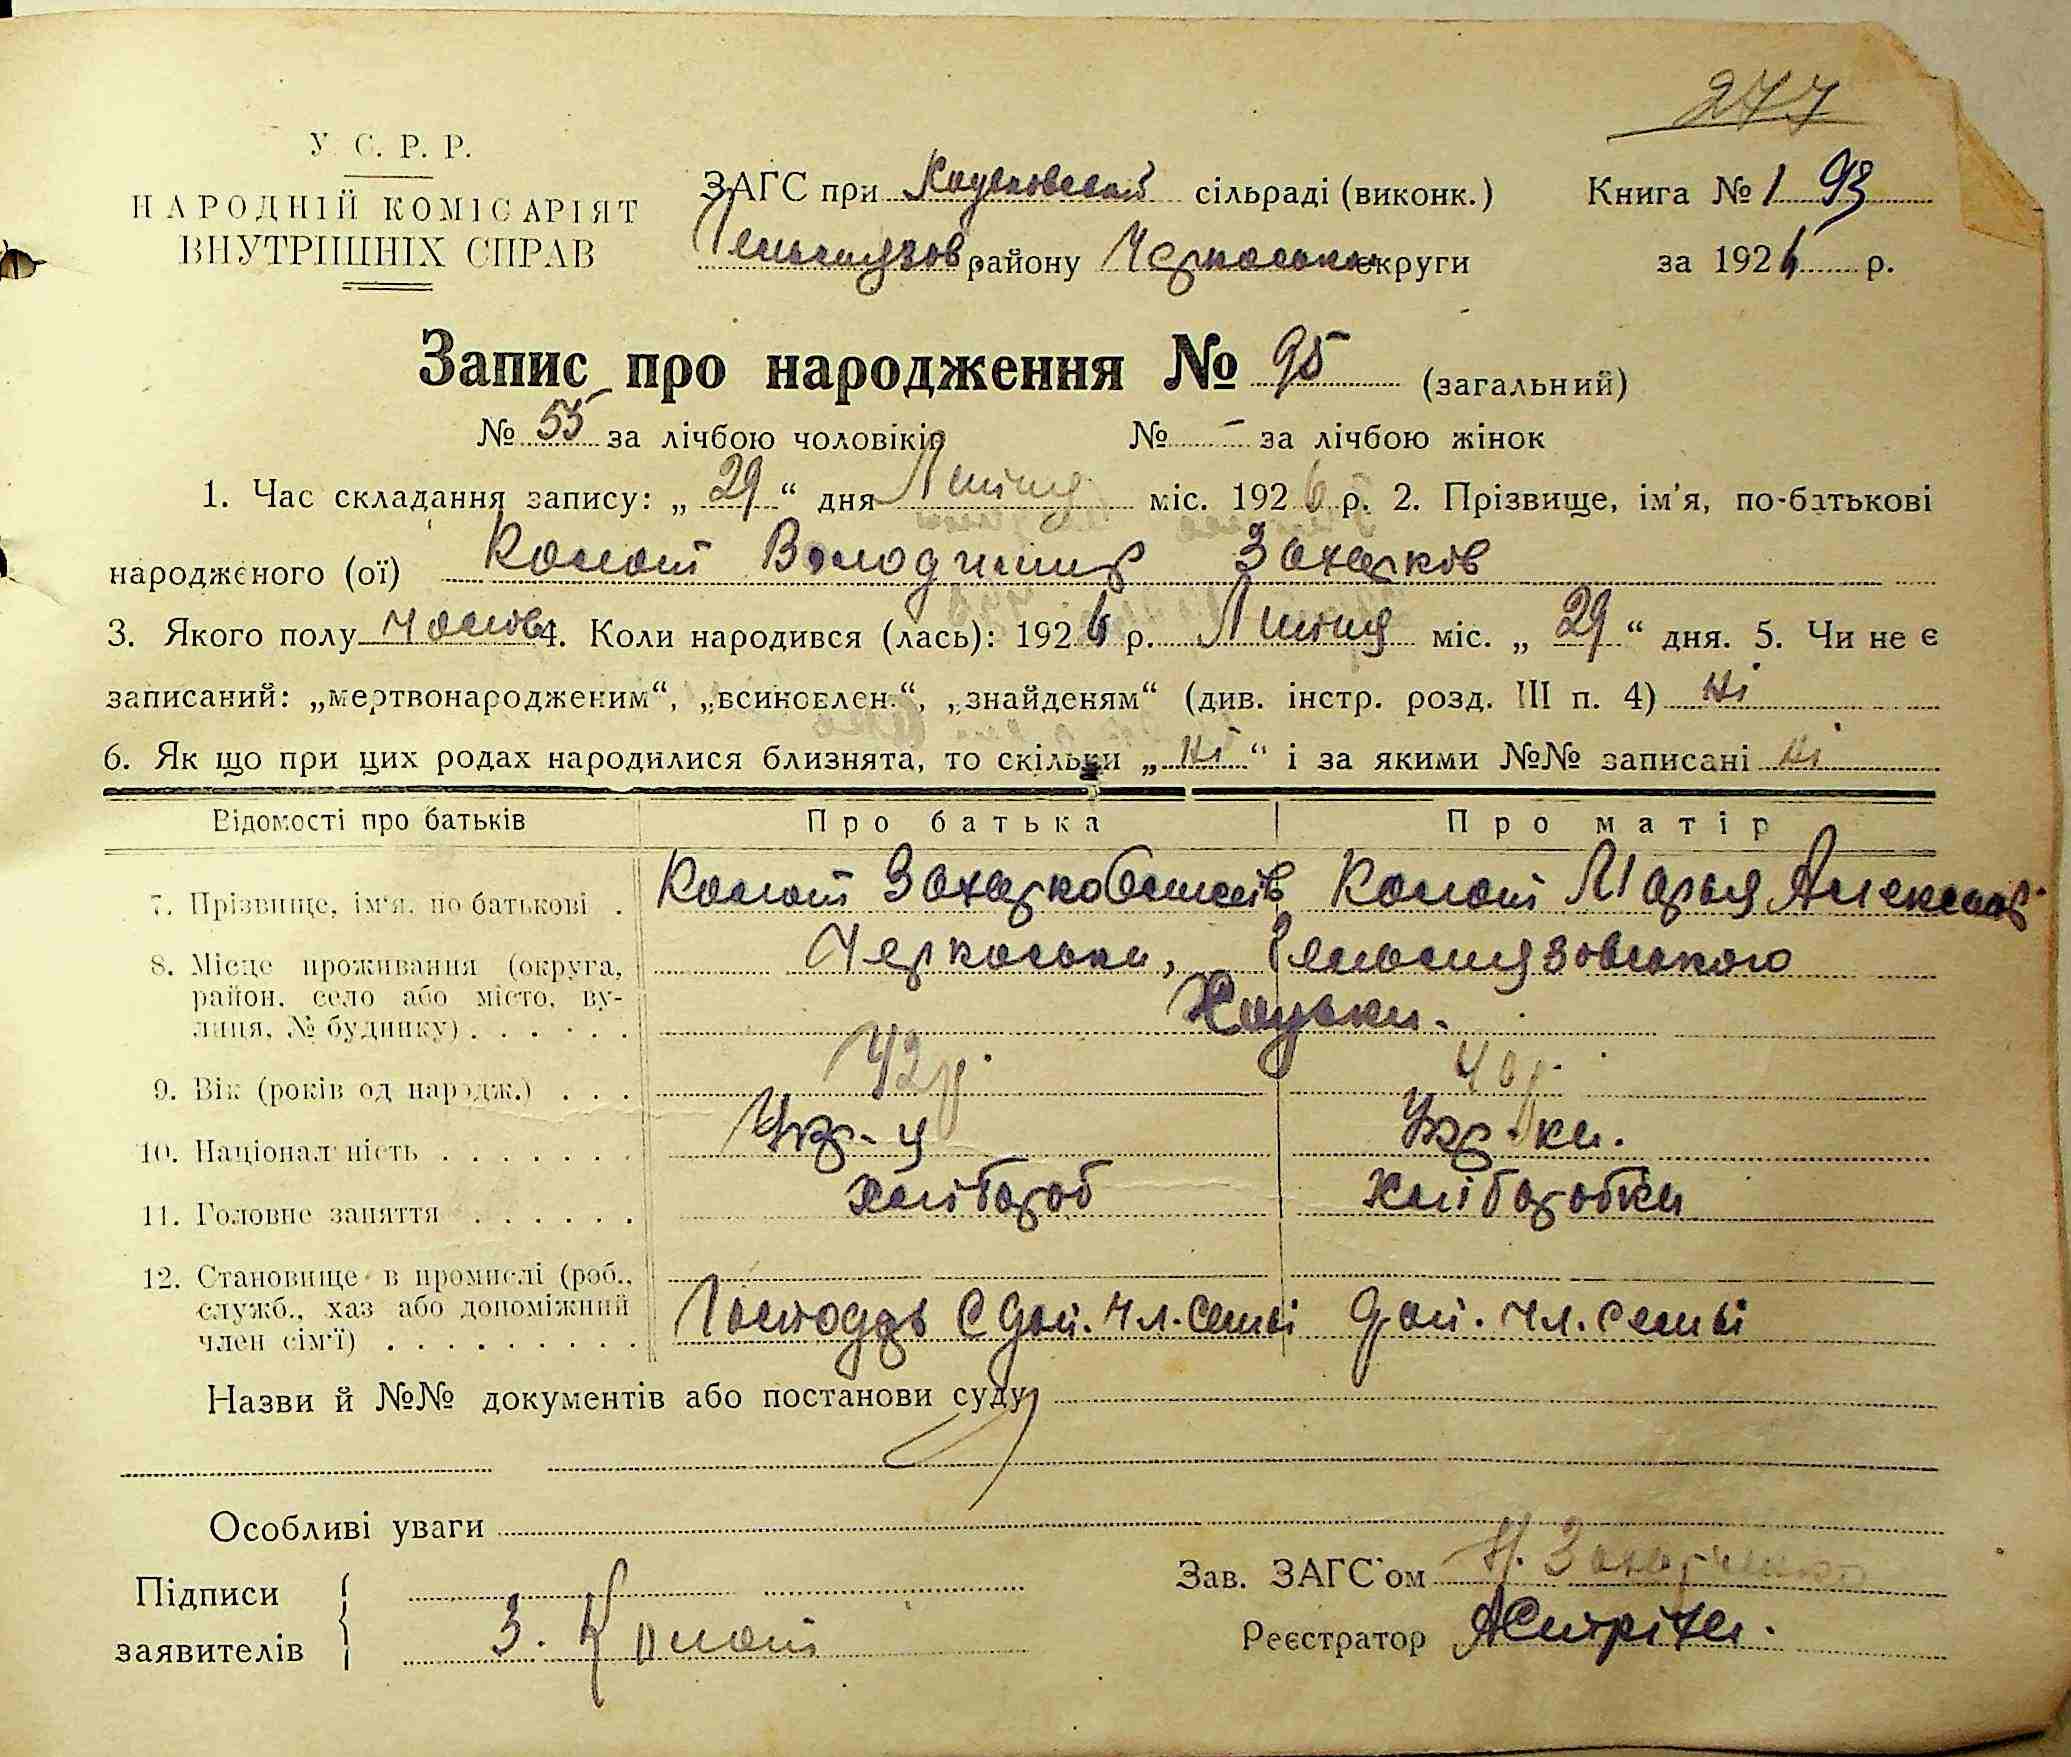 277
У. С. Р. Р.
НАРОДНІЙ КОМІСАРІЯТ
ВНУТРІШНІХ СПРАВ
ЗАГС при Хоцьковской сільраді (виконк.) Книга № 1 93
Гельмязов. району Черкаськи округи за 1926 р.
Запис про народження № 95 (загальний)
№ 55 за лічбою чоловіків № - за лічбою жінок
1. Час складання запису: „ 29 “ дня Липця міс. 1926 р. 2. Прізвище, ім'я, по-батькові
народженого (ої) Коломт Володимир Захарків
3. Якого полу чолов 4. Коли народився (лась): 1926 р. Липця міс. „ 29 “ дня. 5. Чи не є
записаний: „мертвонародженим“, „всиновлен.“, „знайденям“ (див. інстр. розд. III п. 4) ні
6. Як що при цих родах народилися близнята, то скільки „ ні “ і за якими №№ записані ні
Відомості про батьків Про батька Про матір
7. Прізвище, ім'я, по батькові . Захарко Марья Александ
8. Місце проживання (округа, Черкаськи, Гельмязовського
район, село або місто, ву-
лиця, № будинку) . . . . . . Хоцьки.
9. Вік (років од народж.) . . . 42 р. 40 р.
10. Національність . . . . . . . Укр-ц Укр-ки.
11. Головне заняття . . . . . . хлібороб хліборобки
12. Становище в промислі (роб.,
служб., хаз або допоміжний Господарь С доп. чл. семьі доп. чл. семьі
член сім'ї) . . . . . . . . .
Назви й №№ документів або постанови суду
Особливі уваги
Підписи Зав. ЗАГС'ом Н.
заявителів З. Реєстратор